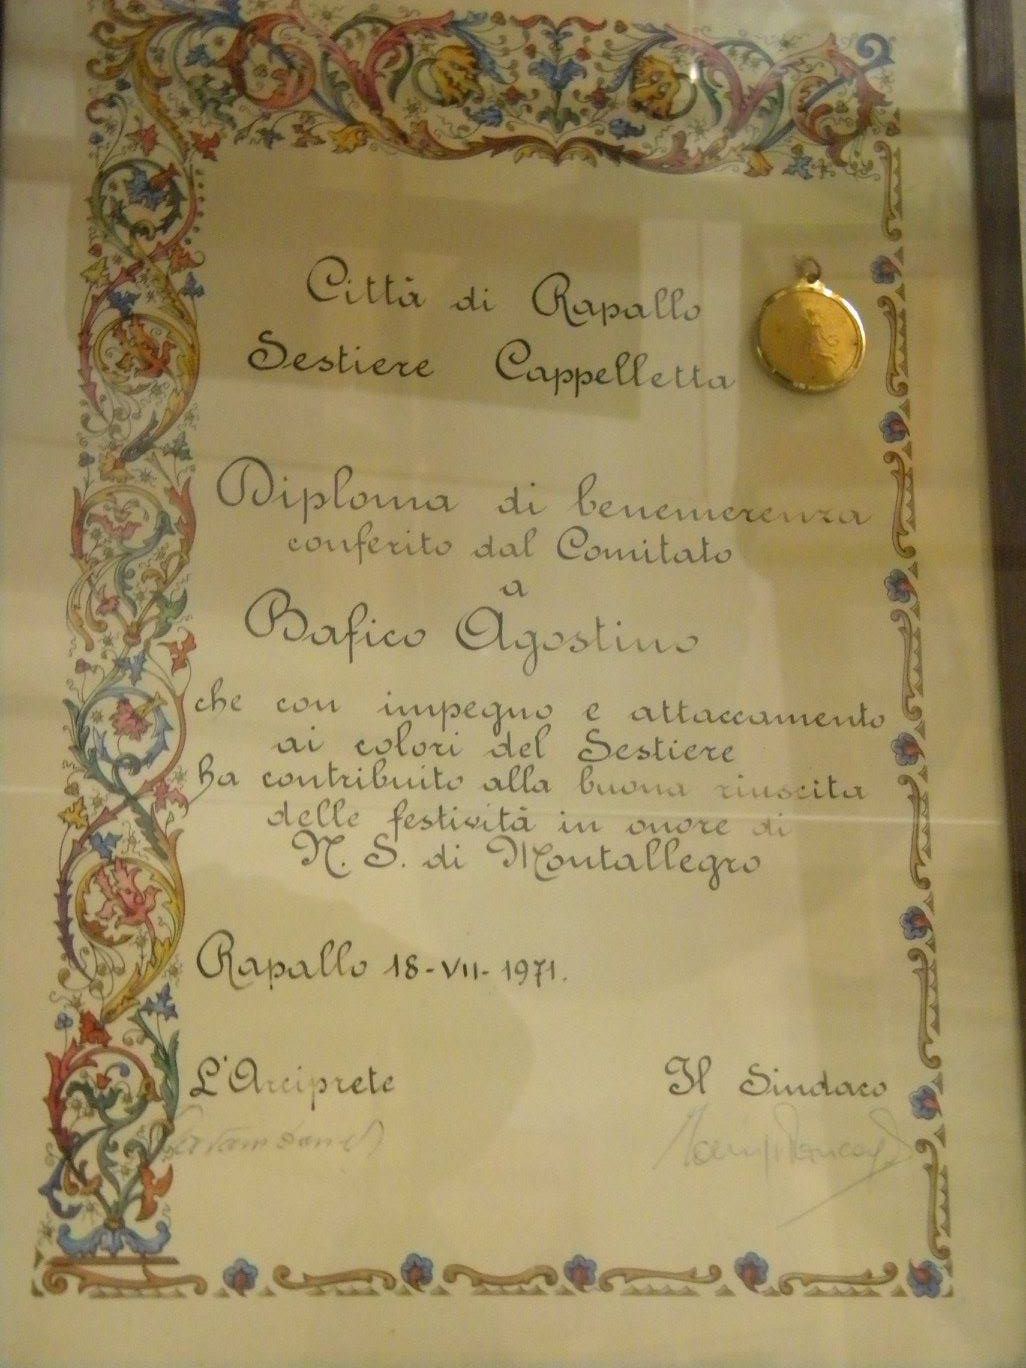 Città di Rapallo
Sestiere Cappelletta
Diploma di benemerenza
conferito dal Comitato
a
Bafico Agostino
che con impegno e attaccamento
ai colori del Sestiere
ha contribuito alla buona riuscita
delle festività in onore di
N. S. di Montallegro
Rapallo 18-VII-1971.
L'Arciprete
Il Sindaco